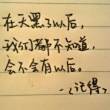 在天黑了以后,
我们都不知道,
会不会有以后。
—《记得》